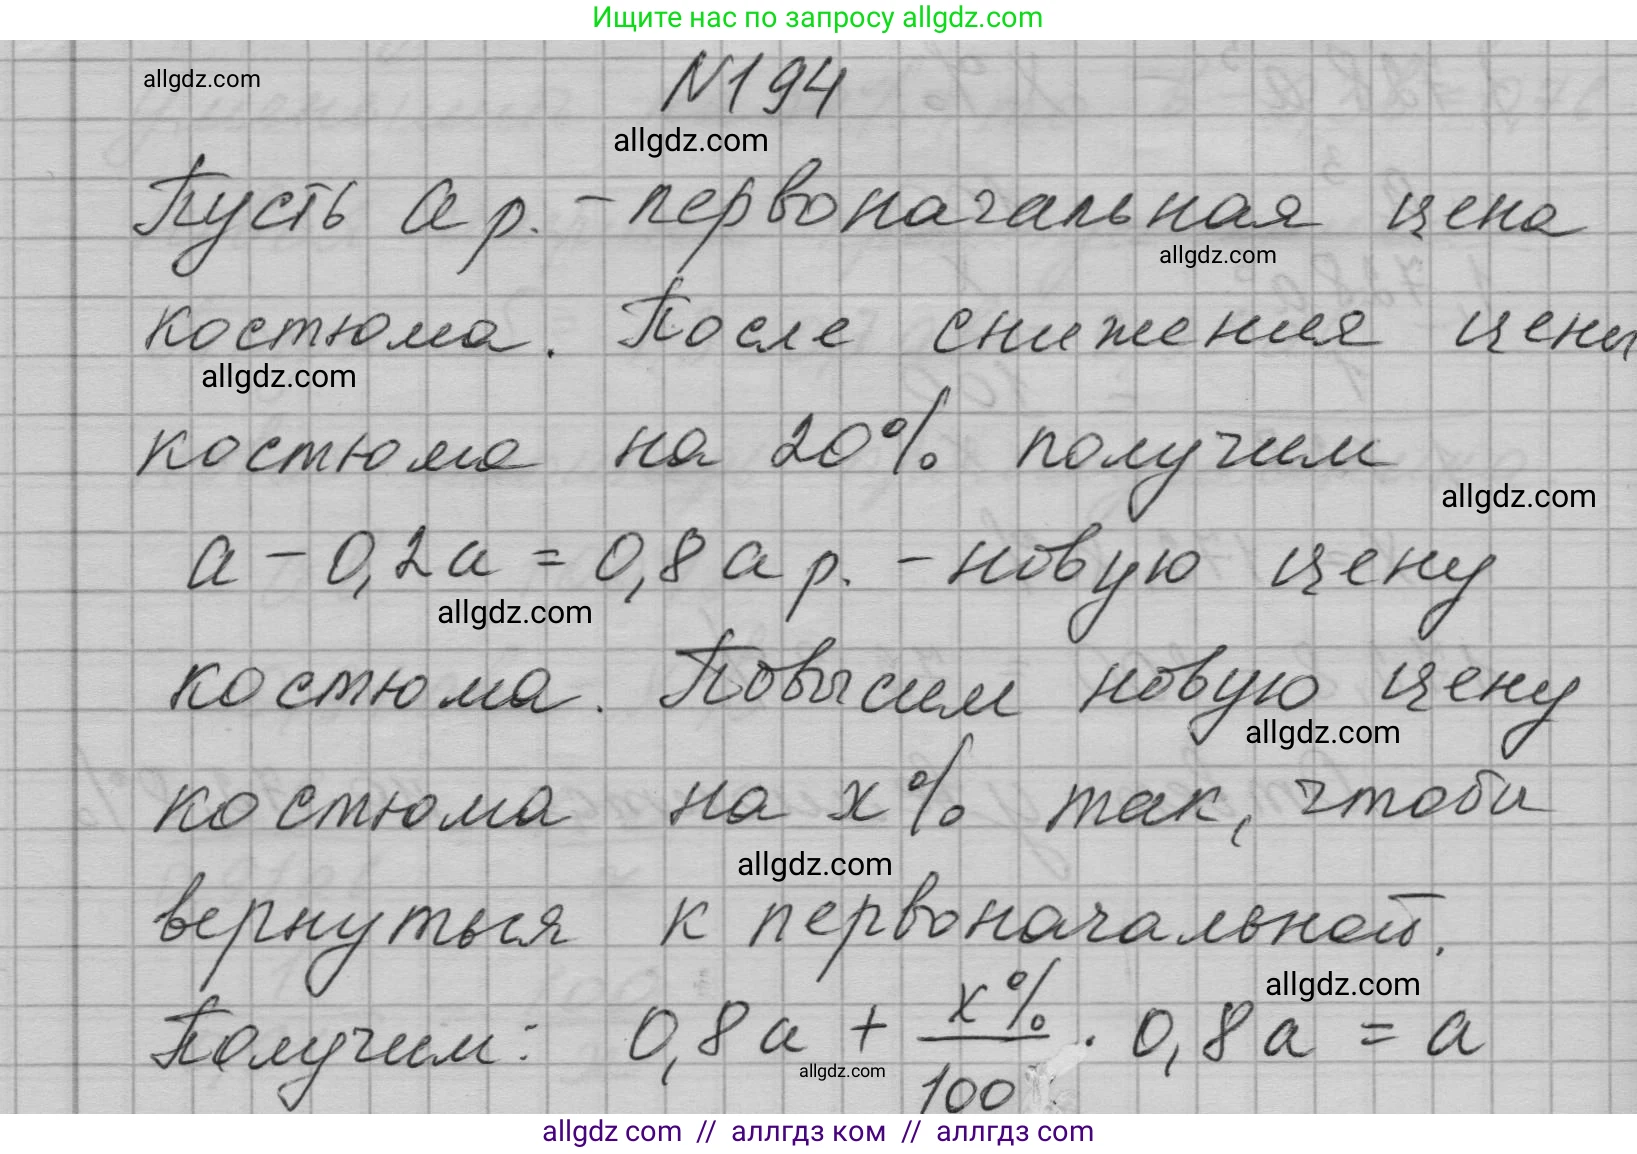 Ищите нас по запросу allgdz.com
allgdz.com
N194
allgdz.com
Пусть a р. – первоначальная цена
allgdz.com
костюма. После снижения цены
allgdz.com
костюма на 20% получим
allgdz.com
a – 0,2a = 0,8a р. – новую цену
allgdz.com
костюма. Повысим новую цену
allgdz.com
костюма на x% так, чтобы
allgdz.com
вернуться к первоначальной.
allgdz.com
Получим: 0,8a + x%/100 · 0,8a = a
allgdz.com
allgdz com // аллгдз ком // аллгдз com